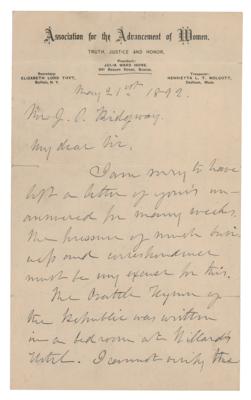 Association for the Advancement of Women.
TRUTH, JUSTICE AND HONOR.
President:
JULIA WARD HOWE,
241 Beacon Street, Boston.
Secretary:
Buffalo, N. Y.
Treasurer:
HENRIETTA L. T. WOLCOTT,
Dedham, Mass.
May 21st 1892.
Mr J. Ridgway.
My dear Sir,
I am sorry to have
left a letter of yours un-
answered for many weeks.
The pressure of much busi-
ness and correspondence
must be my excuse for this.
The Battle Hymn of
the Republic was written
in a bedroom at Willard's
Hotel. I cannot verify the